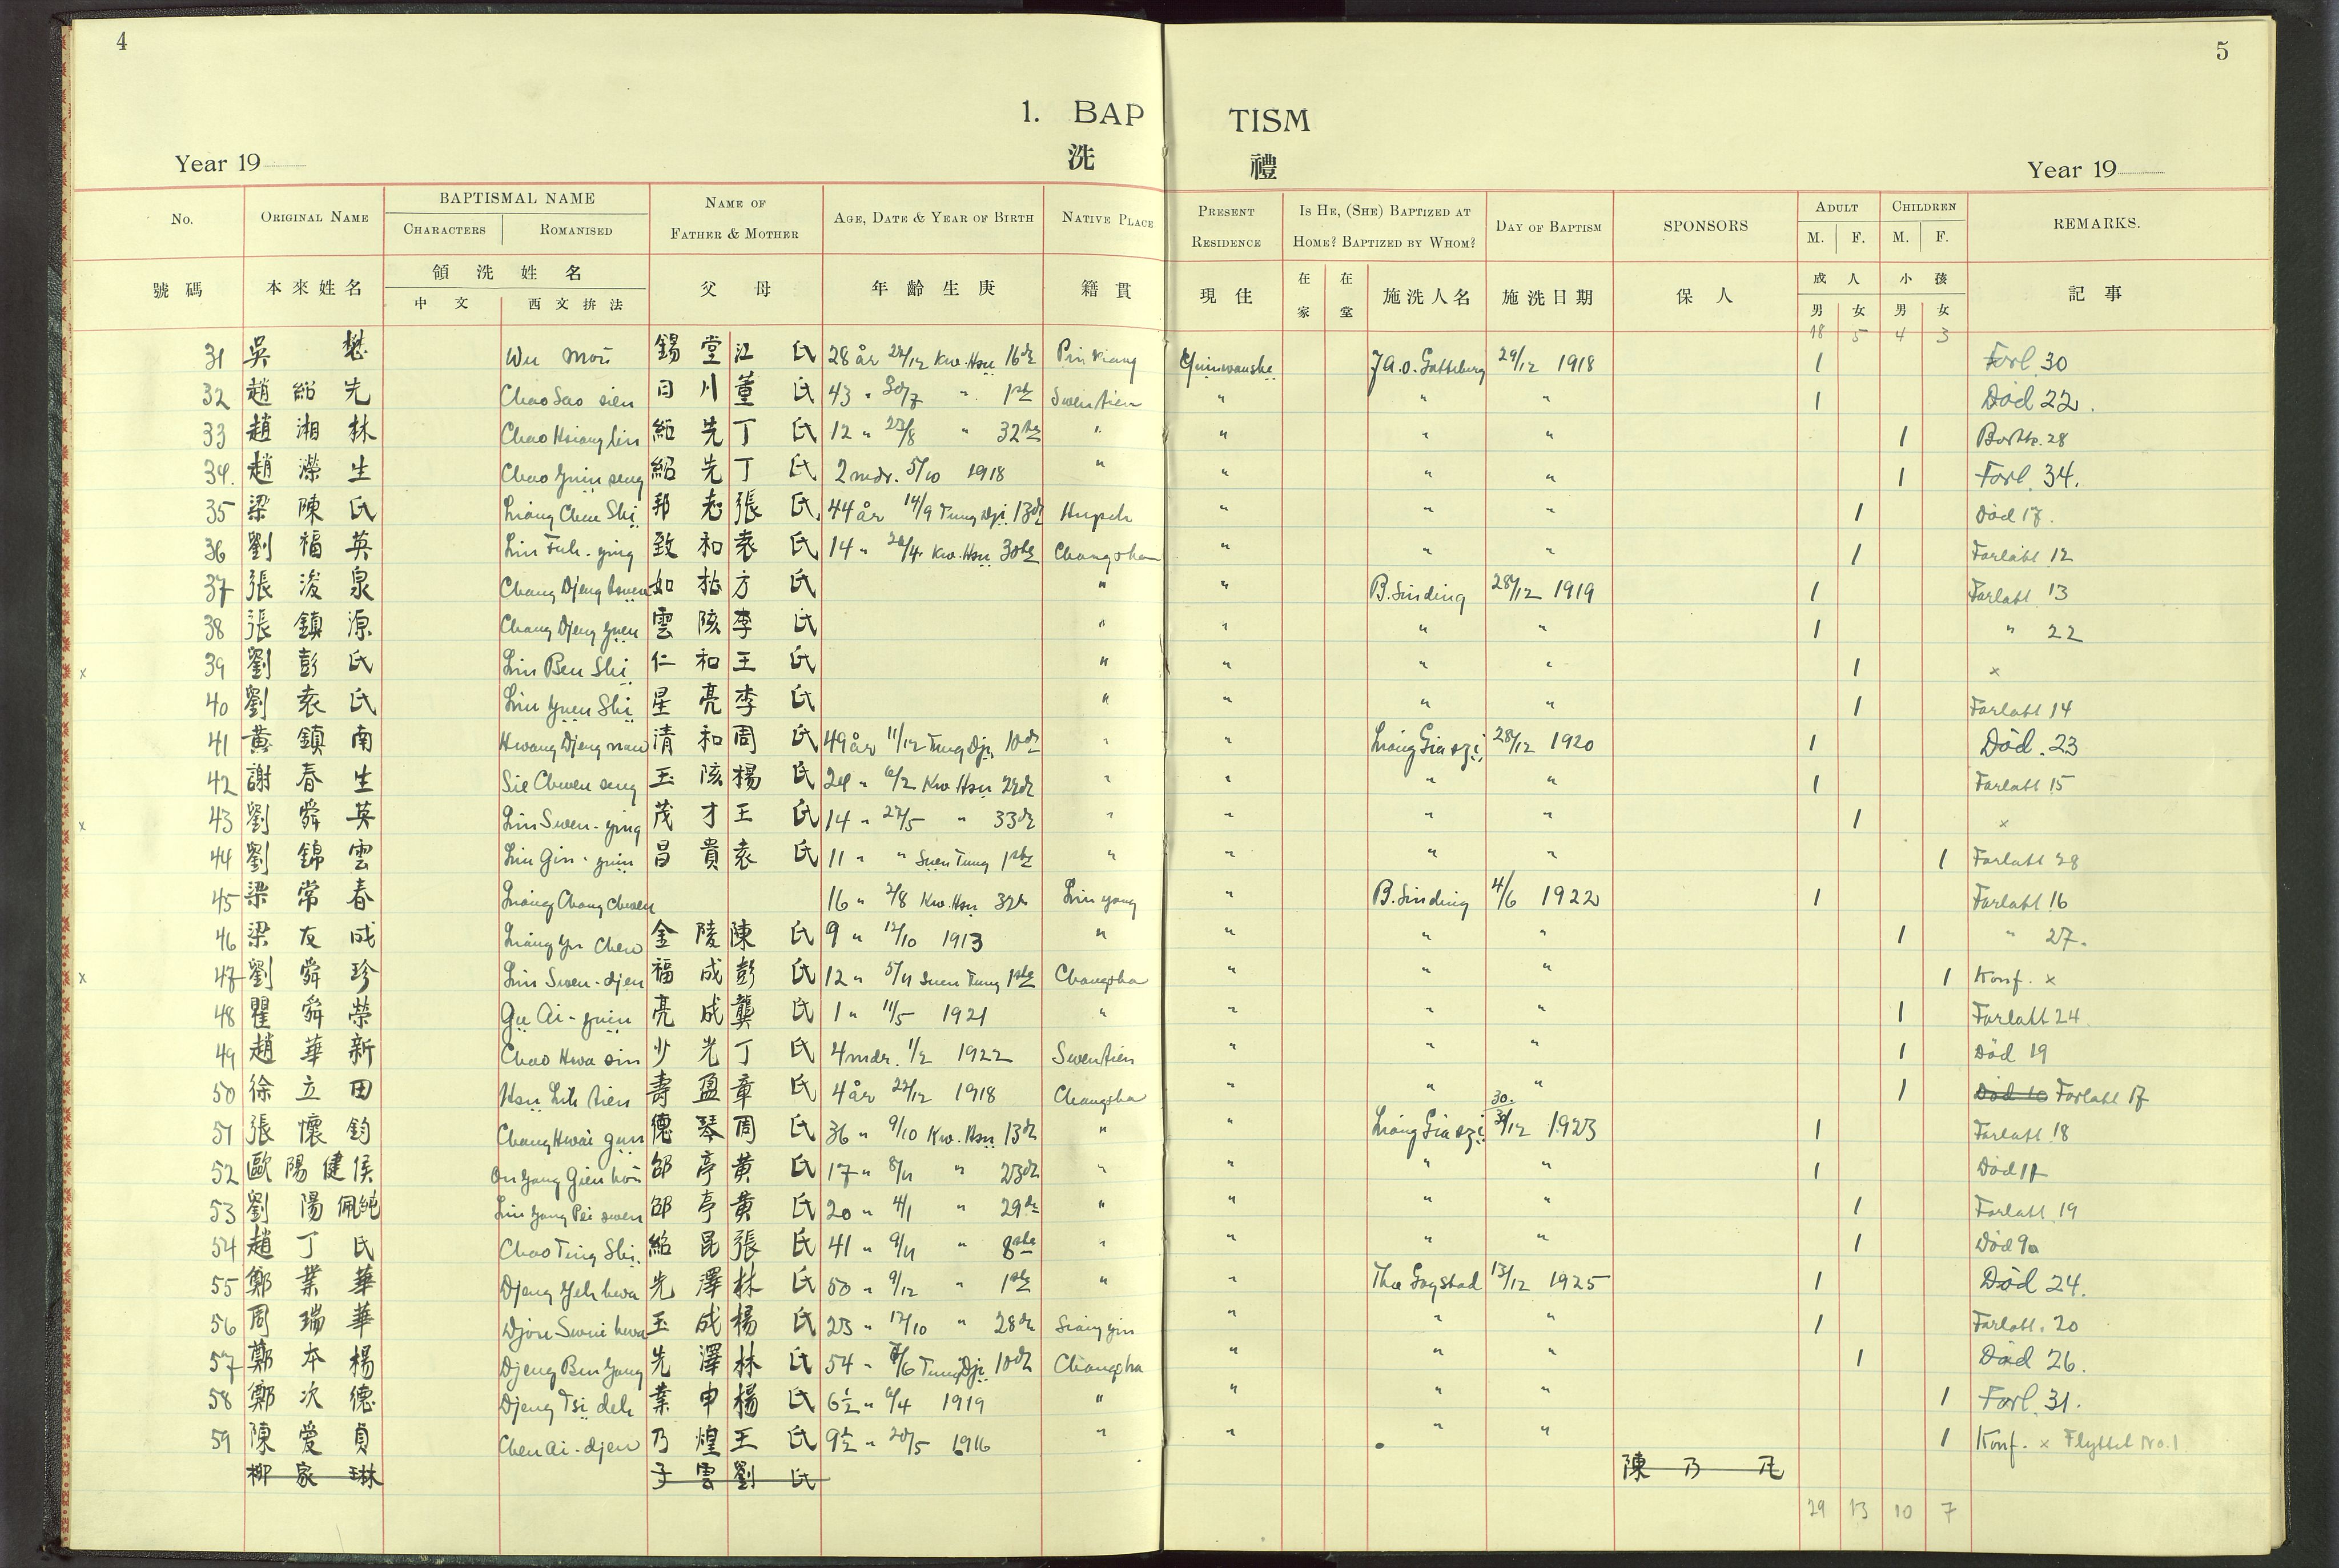 4
5
1. BAP TISM
Year 19 洗 禮 Year 19
No. ORIGINAL NAME BAPTISMAL NAME CHARACTERS ROMANISED NAME OF FATHER & MOTHER AGE, DATE & YEAR OF BIRTH NATIVE PLACE PRESENT RESIDENCE IS HE, (SHE) BAPTIZED AT HOME? BAPTIZED BY WHOM? DAY OF BAPTISM SPONSORS ADULT M. F. CHILDREN M. F. REMARKS.
號碼 本來姓名 領洗姓名 中文 西文拚法 父母 年齡生庚 籍貫 現住 在家 在堂 施洗人名 施洗日期 保人 成人 男 女 小孩 男 女 記事
18 5 4 3
31 吳 懋 Wu Mou 錫堂 江氏 28 år 29/12 Kw. Hsu 16de 29/12 1918 1 Forl. 30
32 趙紹先 Chao Sao sien 日川 董氏 43 " 30/7 " 1ste Swentien " " " 1 Död 22.
33 趙湘林 Chao Hsiang lin 紹先 丁氏 12 " 29/8 " 32te " " " " 1 28
34. 趙濚生 Chao Yuin seng 紹先 丁氏 2 mdr. 5/10 1918 " " " " 1 Forl. 34.
35 梁陳氏 Liang Chen Shi 邦 張氏 44 år 14/9 Tung Dji 13de Hupeh " " " 1 Död 17.
36 劉福英 Liu Fuh-ying 致和 袁氏 14 " 4 Kw. Hsu 30te Changsha " " " 1 Forlatt 12
37 張浚泉 Chang Djeng tsuen 如 方氏 " " B. Sinding 28/12 1919 1 Forlatt 13
38 張鎮源 Chang Djeng Yuen 雲陔 李氏 " " " " 1 " 22
x 39 劉彭氏 Liu Ben Shi 仁和 王氏 " " " " 1 x
40 劉袁氏 Liu Yuen Shi 星亮 李氏 " " " " 1 Forlatt 14
41 黃鎮南 Hwang Djeng nan 清和 周氏 49 år 11/12 Tung Dji 10de " " Liang Gia szi 28/12 1920 1 Död. 23
42 謝春生 Sie Chwen seng 玉陔 楊氏 24 " 6/2 Kw Hsu 22de " " " " 1 Forlatt 15
x 43 劉舜英 Liu Swen-ying 茂才 王氏 14 " 27/5 " 33de " " " " 1 x
44 劉錦雲 Liu Gin-yuin 昌貴 袁氏 11 " " Suen Tung 1ste " " " " 1 Forlatt 28
45 梁常春 Liang Chang Chwen 16 " 2/8 Kw. Hsu 32te Liu yang " B. Sinding 4/6 1922 1 Forlatt 16
46 梁友成 Liang Yu Chen 金陵 陳氏 9 " 12/10 1913 " " " " 1 " 27.
x 47 劉舜珍 Liu Swen-djen 福成 彭氏 12 " 5/11 Suen Tung 1ste Changsha " " " 1 Konf. x
48 瞿舜榮 Gu Ai-yuin 亮成 龔氏 1 " 11/5 1921 " " " " 1 Forlatt 24
49 趙華新 Chao Hwa sin 少光 丁氏 4 mdr. 1/2 1922 Swentien " " " 1 Död 19
50 徐立田 Hsu Lih tien 壽盈 章氏 4 år 22/12 1918 Changsha " " " 1 Död 10 Forlatt 17
51 張懷鈞 Chang Hwai gun 德琴 周氏 36 " 9/10 Kw. Hsu 13de " " Liang Gia szi 30. 30/12 1923 1 Forlatt 18
52 歐陽健侯 Ou Yang Gien hou 邵亭 黃氏 17 " 8/11 " 23de " " " " 1 Död 11
53 劉陽佩純 Liu Yang Pei swen 邵亭 黃氏 20 " 4/1 " 29de " " " " 1 Forlatt 19
54 趙丁氏 Chao Ting Shi. 紹昆 張氏 41 " 9/11 " 8de " " " " 1 Död 9a
55 鄭業華 Djeng Yeh hwa 先澤 林氏 50 " 9/12 " 1ste " " 13/12 1925 1 Död 24.
56 周瑞華 Djou Swui hwa 玉成 楊氏 23 " 17/10 " 28de Siang yin " " " 1 Forlatt. 20
57 鄭本楊 Djeng Ben Yang 先澤 林氏 54 " Tung Dji 10de Changsha " " " 1 Död 26.
58 鄭次德 Djeng Tsi deh 業申 楊氏 6½ " 6/4 1919 " " " " 1 Forl. 31.
59 陳愛貞 Chen Ai-djen 乃煌 王氏 9½ " 20/5 1916 " " " " 1 Konf. x Flyttet No. 1
柳家琳 子雲 劉氏 陳乃
29 13 10 7